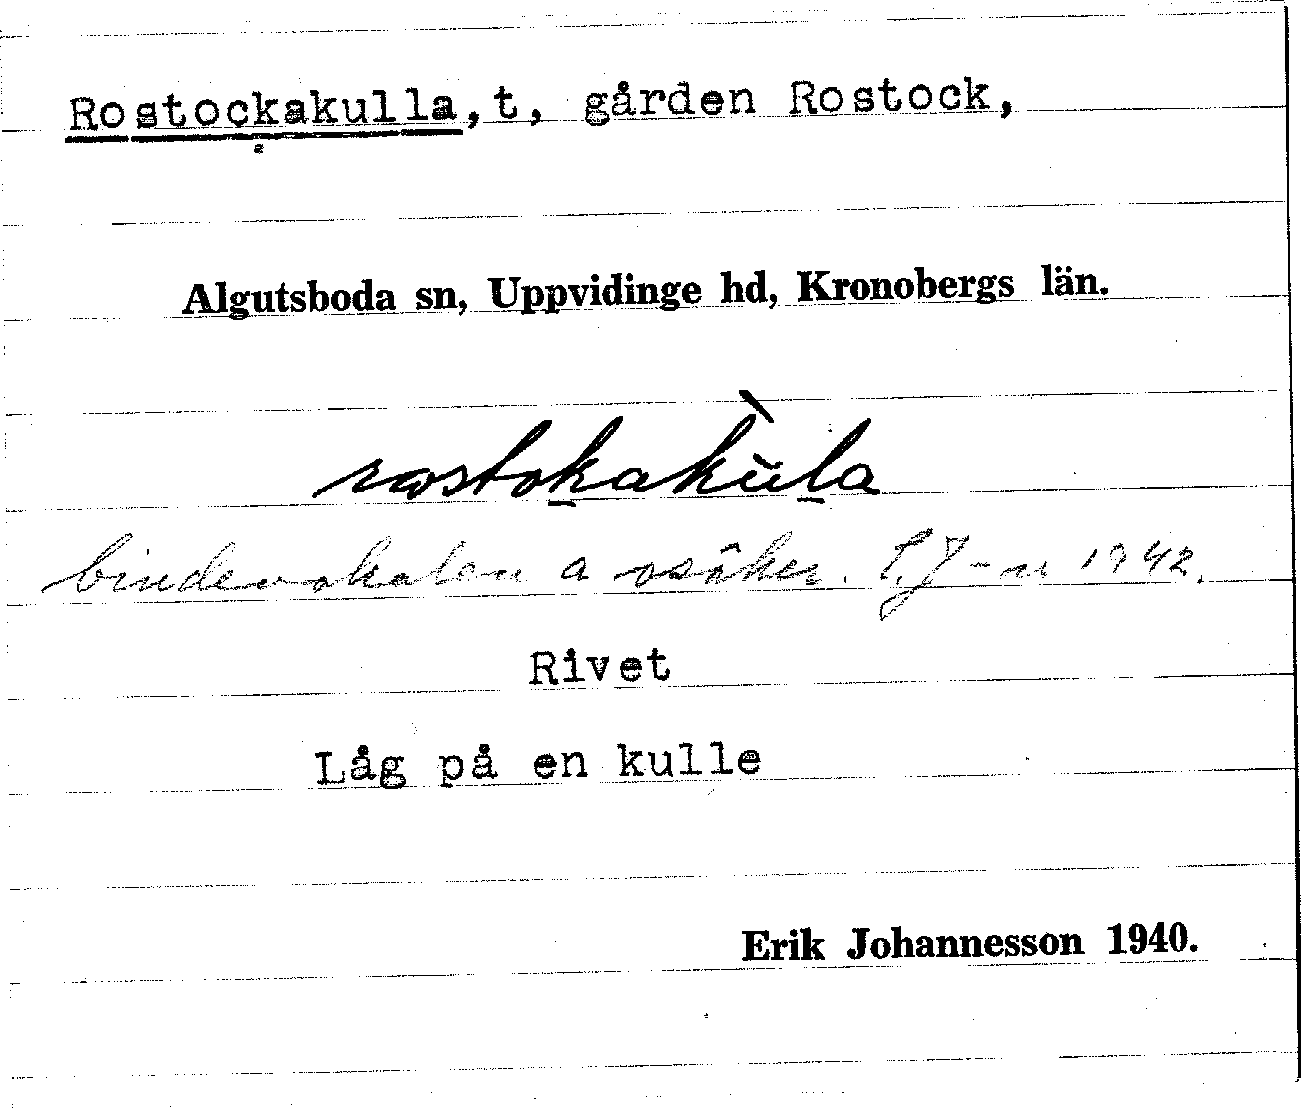 Rostockakulla, t, gården Rostock,
Algutsboda sn, Uppvidinge hd, Kronobergs län.
rostokakùla
bindevokalen a osäker. E.J-n 1942.
Rivet
Låg på en kulle
Erik Johannesson 1940.